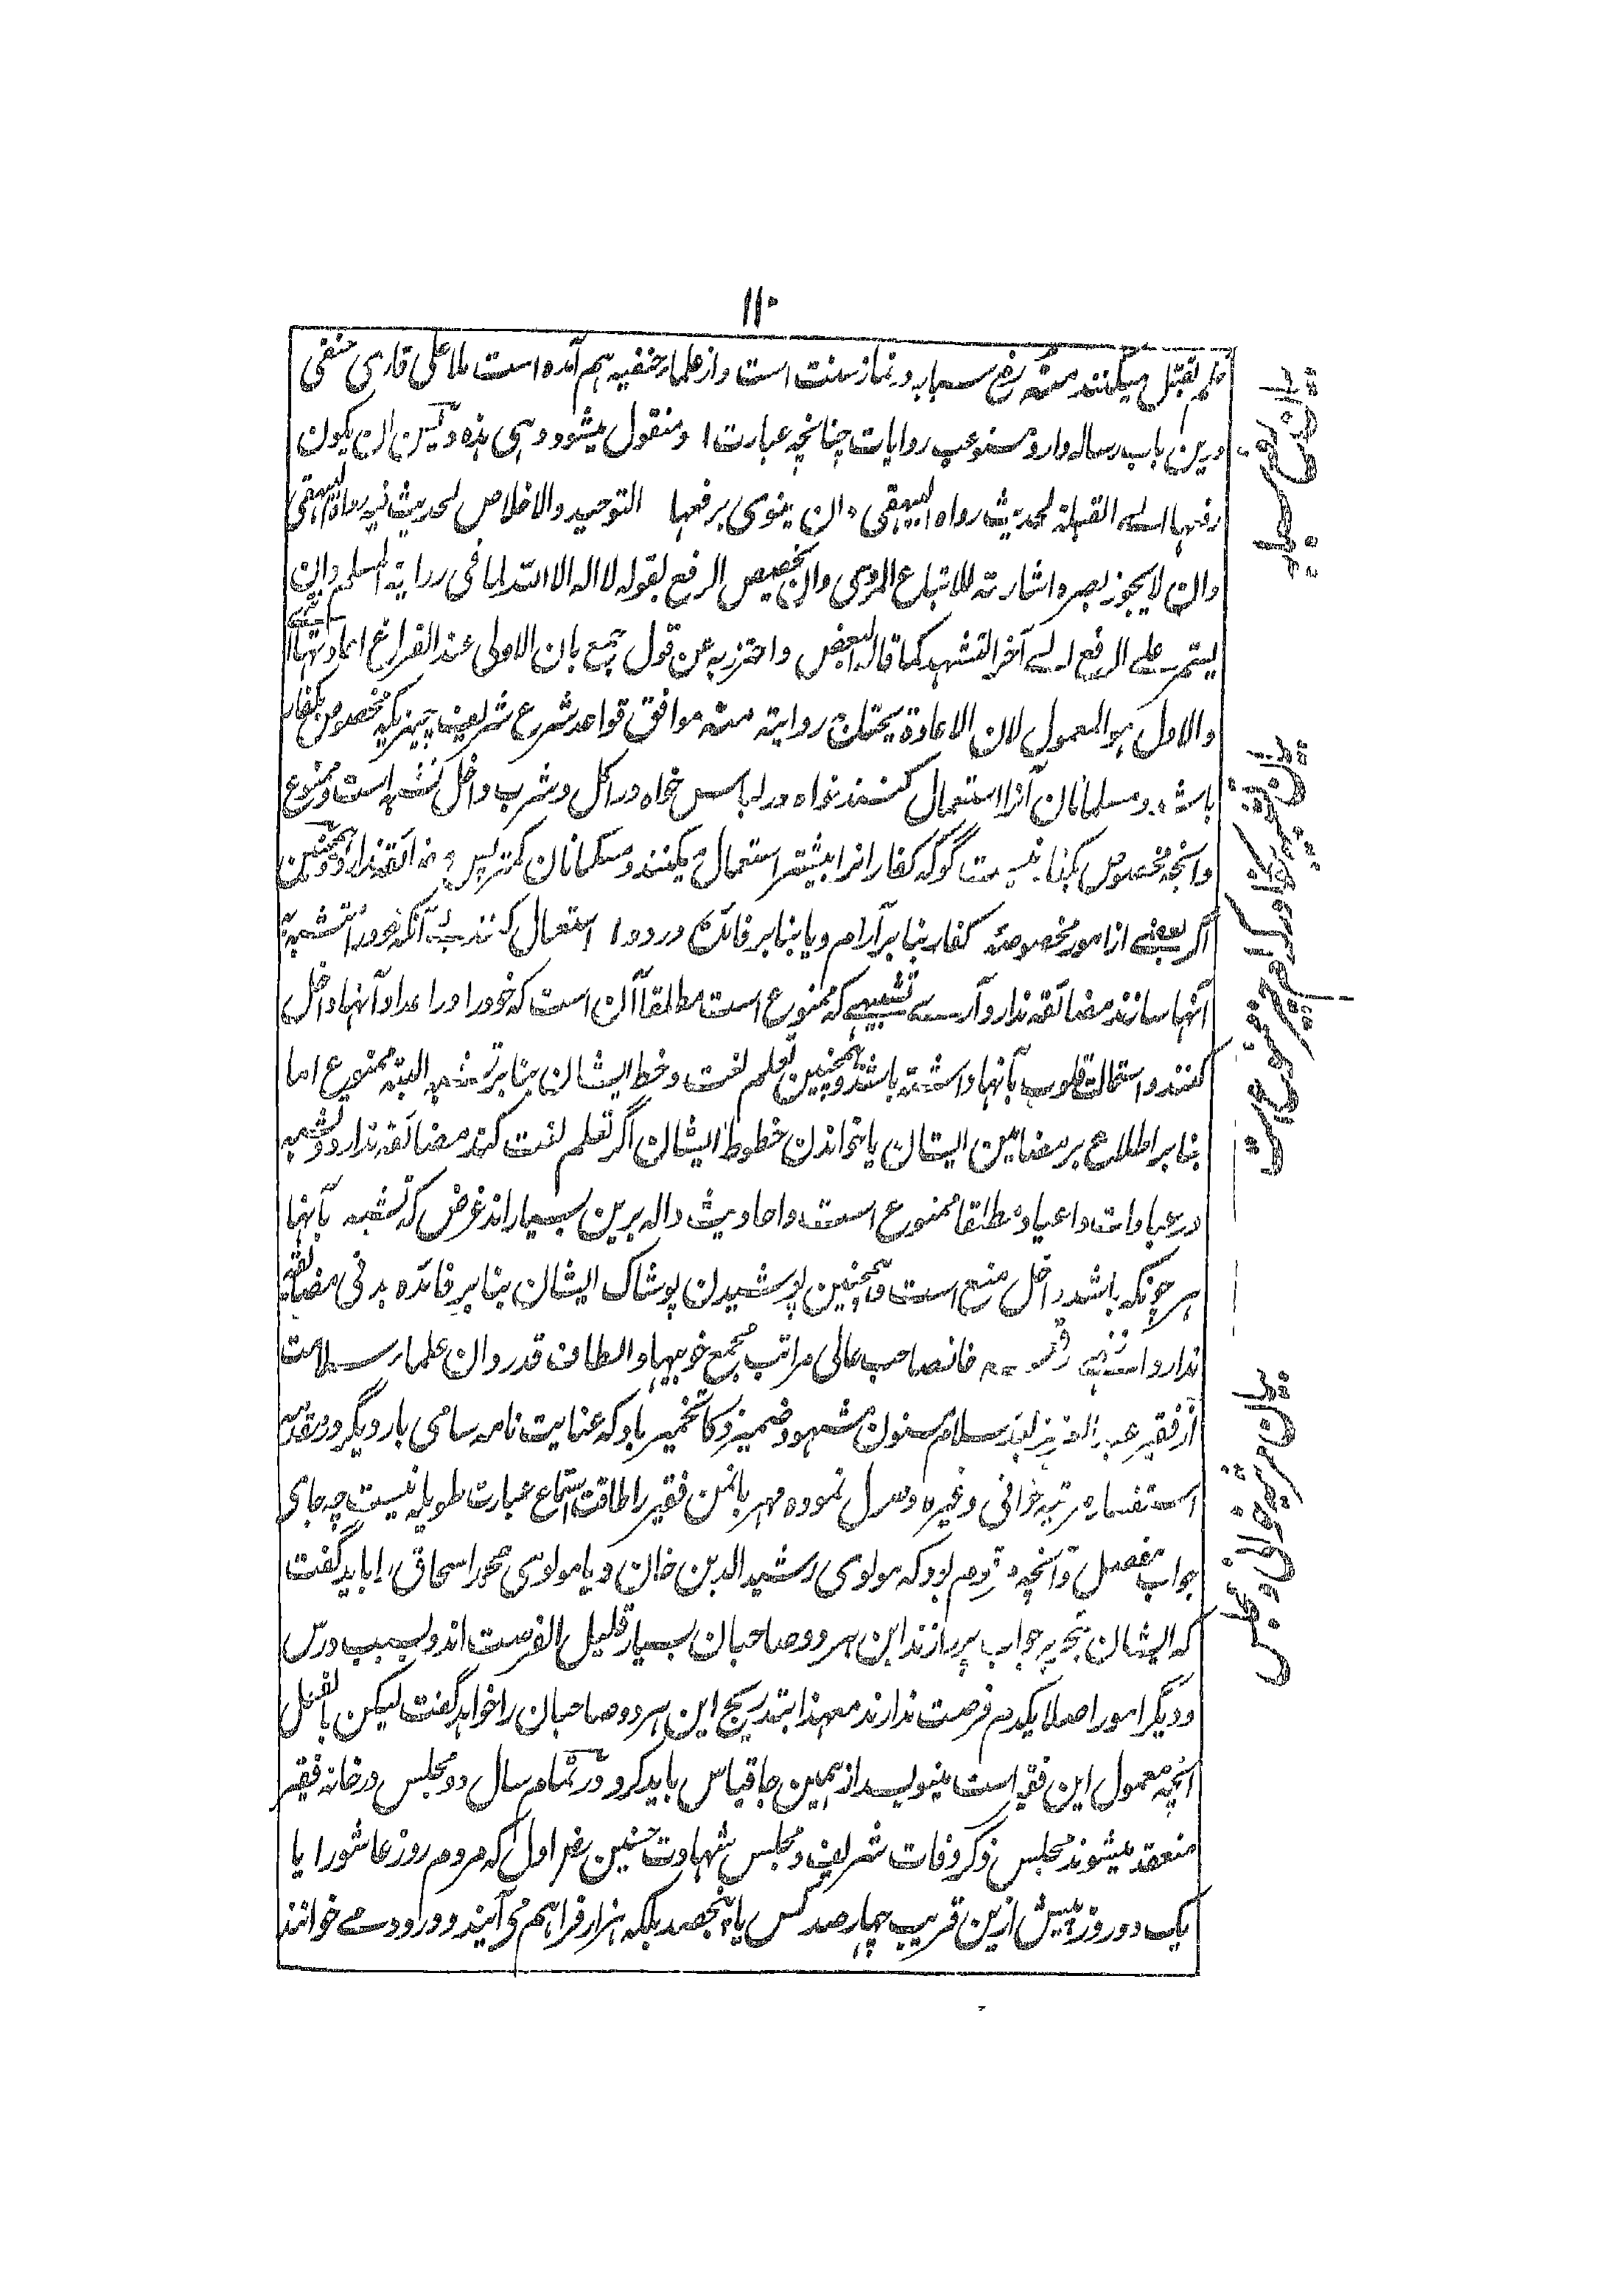 ۱۱۰
فلم یقبل میکنند مسئله رفع سبابه در نماز سنت است و از علماء حنفیه هم آمده است ملا علی قاری حنفی
درین باب رساله دارد مستوعب روایات چنانچه عبارت او منقول میشود و هی هذه و یسن ان یکون
رفعها الی القبلة لحدیث رواه البیهقی و ان ینوی برفعها التوحید والاخلاص لحدیث فیه رواه البیهقی
وان لا یجوز بصره اشارته للاتباع المروی وان تخصیص الرفع بقوله لا اله الا الله لما فی روایة المسلم وان
یستمر علی الرفع الی آخر التشهد کما قال البعض واحترز به عن قول جمع بان الاولی عند الفراغ اعادتها انتهی
والاول هو المعمول لان الاعادة یحتاج روایته مسئله موافق قواعد شرع شریف چیزیکه مخصوص بکفار
باشد و مسلمانان آنرا استعمال کنند خواه در لباس خواه در اکل و شرب داخل تشبه است و ممنوع
و آنچه مخصوص بکفار نیست گو که کفار آنرا بیشتر استعمال میکنند و مسلمانان کمتر پس مضائقه ندارد و همچنین
اگر بعضی از امور مخصوصه کفار بنابر آرام و یا بنابر فائده در دوا استعمال کنند بی آنکه خود را متشبه
آنها سازند مضائقه ندارد آری تشبیهی که ممنوع است مطلقا آن است که خود را در اعداد آنها داخل
کنند و استمالت قلوب بآنها داشته باشند و همچنین تعلم لغت و خط ایشان بنابر تشبه البته ممنوع اما
بنابر اطلاع بر مضامین ایشان یا خواندن خطوط ایشان اگر تعلم لغت کند مضائقه ندارد و تشبه
در عبادات و اعیاد مطلقا ممنوع است و احادیث داله برین بسیار اند غرض که تشبه بآنها
هر چونکه باشد داخل منع است و همچنین پوشیدن پوشاک ایشان بنابر فائده بدنی مضائقه
ندارد انتهی رقعه خانصاحب عالی مراتب مجمع خوبیها و الطاف قدردان علماء سلامت
از فقیر عبدالعزیز بعد سلام مسنون مشهود ضمیر ذکا تخمیر باد که عنایت نامه سامی بار دیگر در مقدمه
استفسار مرثیه خوانی و غیره وصول نموده مهربان من فقیر را طاقت استماع عبارت طویله نیست چه جای
جواب مفصل و آنچه مرقوم بود که مولوی رشید الدین خان و یا مولوی محمد اسحاق را باید گفت
که ایشان بتحریر جواب پردازند این هر دو صاحبان بسیار قلیل الفرصت اند و بسبب درس
و دیگر امور اصلا یکدم فرصت ندارند معهذا بتدریج این هر دو صاحبان را خواهد گفت لیکن بالفعل
آنچه معمول این فقیر است مینویسد از همین جا قیاس باید کرد در تمام سال دو مجلس در خانه فقیر
منعقد میشوند مجلس ذکر وفات شریف و مجلس شهادت حسنین اول که مردم روز عاشورا یا
یک دو روز پیش ازین قریب چهار صد کس یا پانصد بلکه هزار فراهم می آیند و درود می خوانند